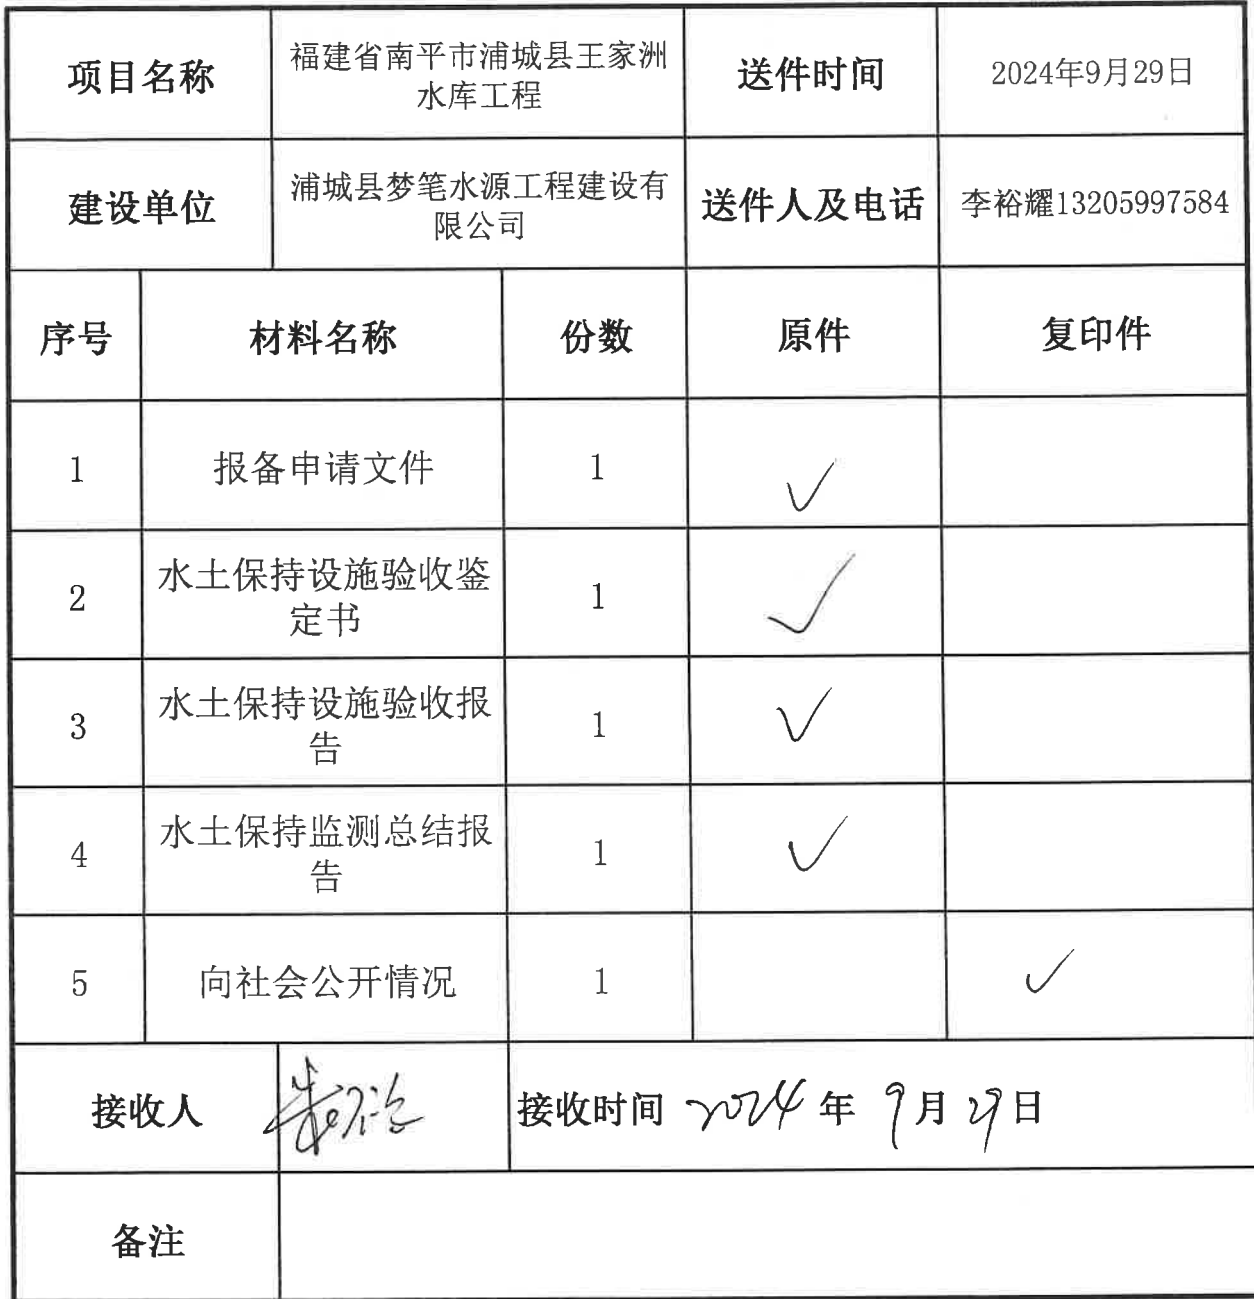 项目名称
福建省南平市浦城县王家洲
水库工程
送件时间
2024年9月29日
建设单位
浦城县梦笔水源工程建设有
限公司
送件人及电话
李裕耀13205997584
序号 材料名称 份数 原件 复印件
1 报备申请文件 1 √
2 水土保持设施验收鉴
定书 1 √
3 水土保持设施验收报
告 1 √
4 水土保持监测总结报
告 1 √
5 向社会公开情况 1 √
接收人
接收时间 2024年9月29日
备注